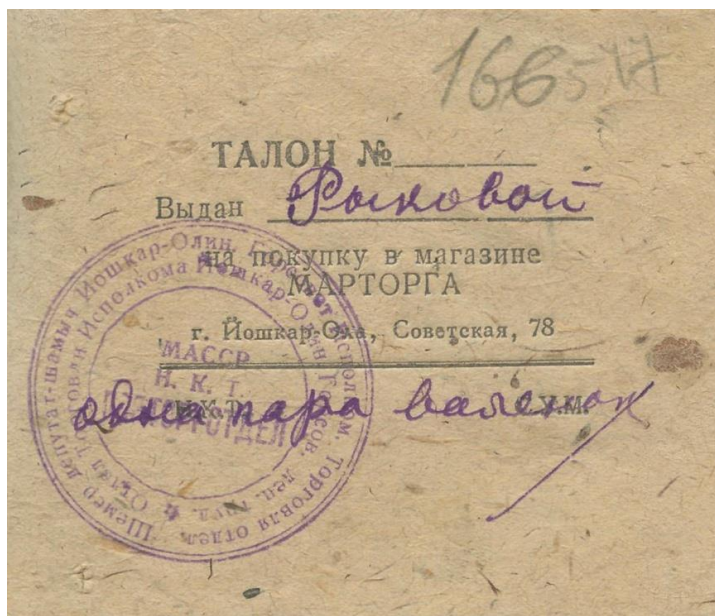 166577
ТАЛОН №
Выдан Рыковой
на покупку в магазине
МАРТОРГА
г. Йошкар-Ола, Советская, 78
одна пара валенок
МАССР
Н. К. Т.
Шемер депутат-шамыч Йошкар-Олин, Горсовет исполком. Торговля отдел.
Отдел торговли Исполкома Йошкар-Олин. Гор. Сов. деп. труд.